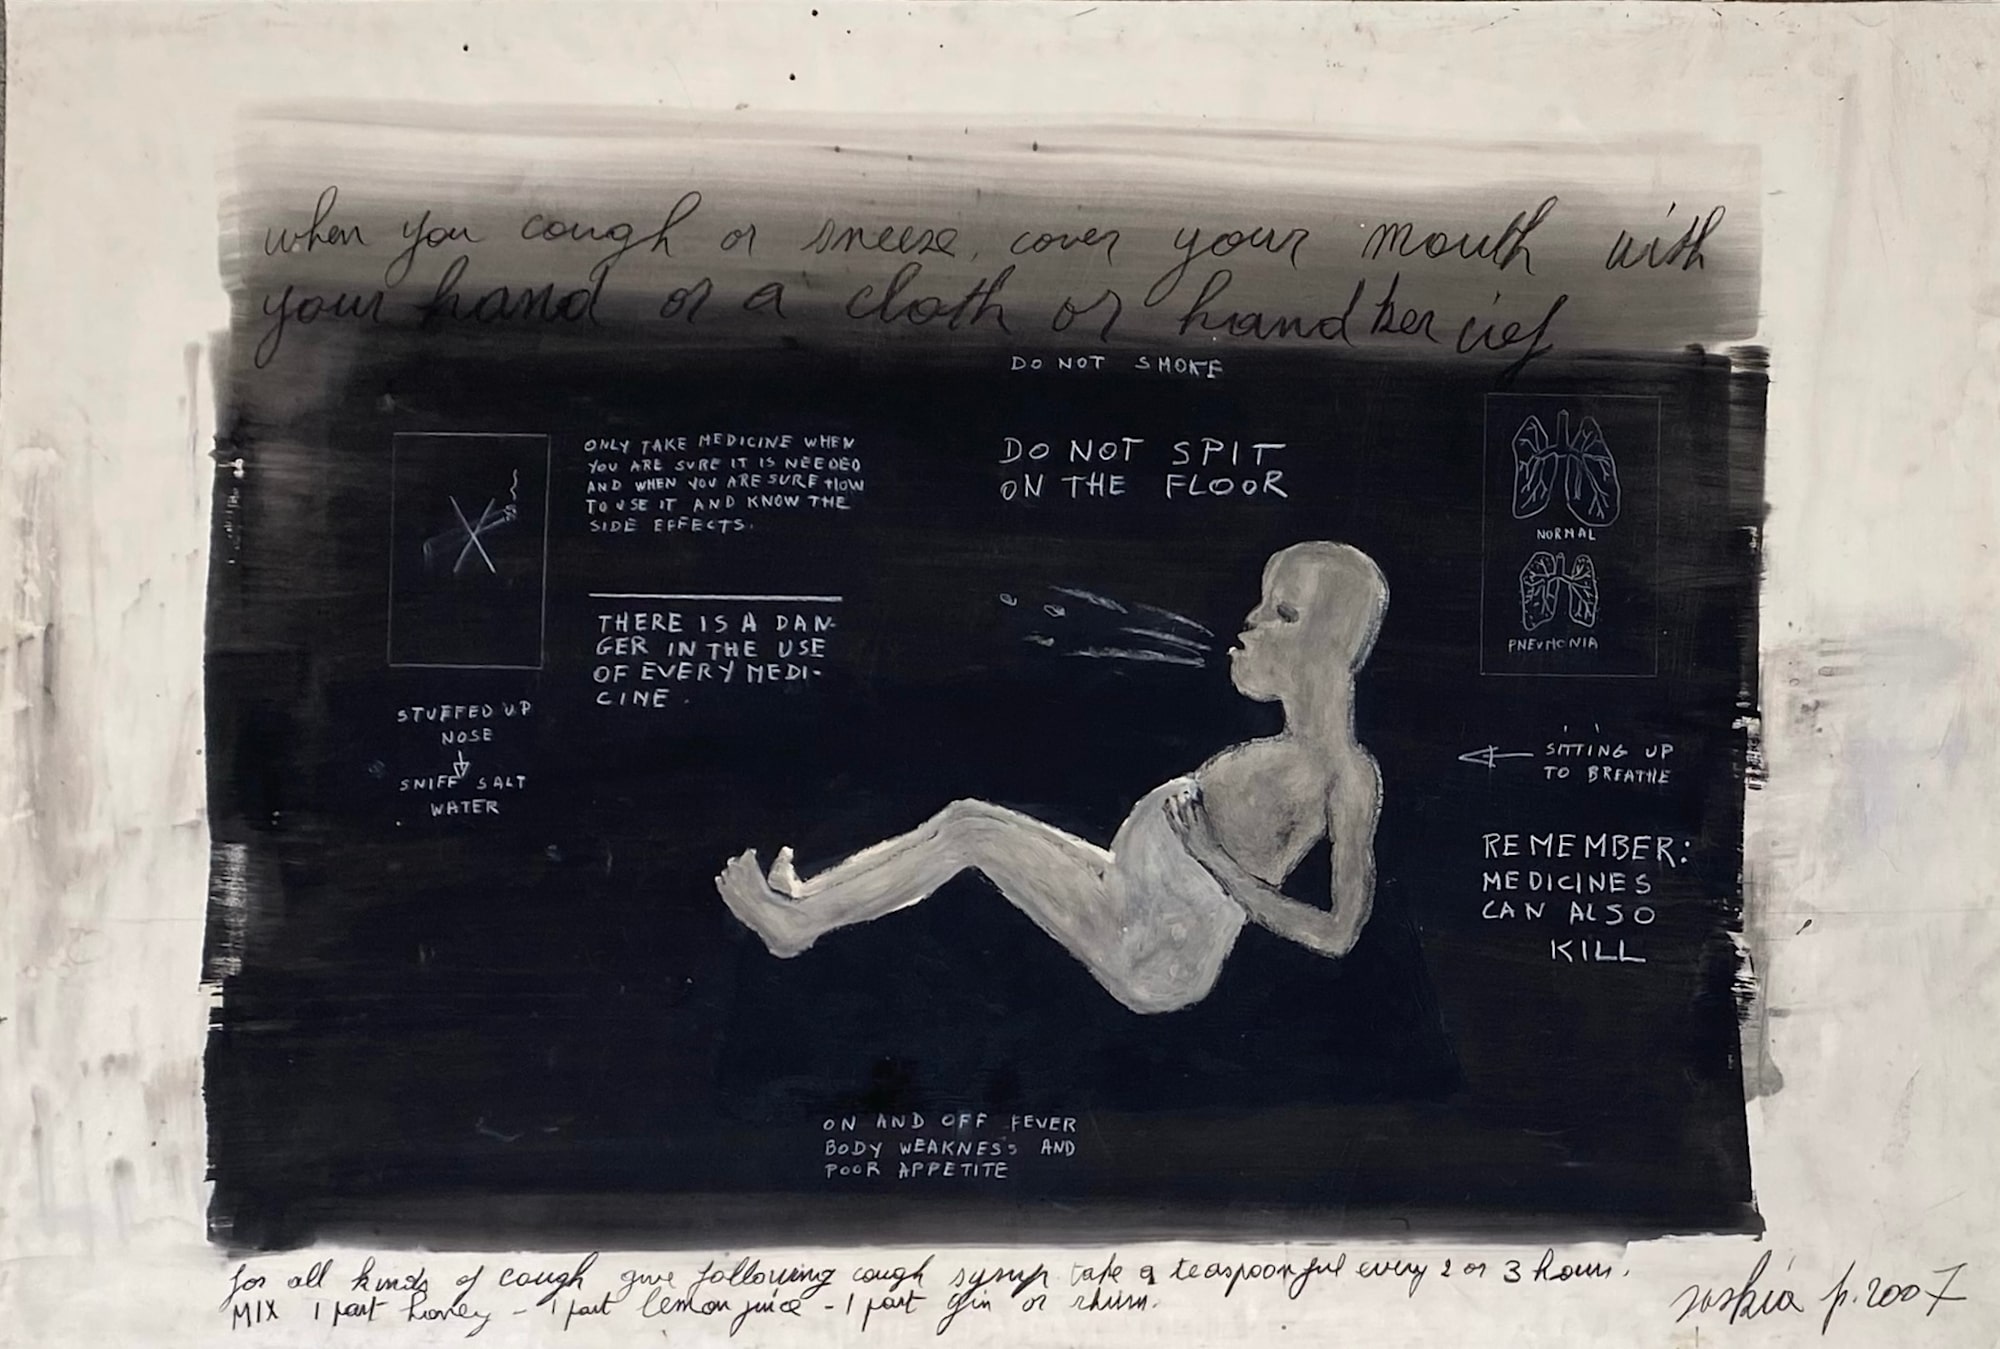 when you cough or sneeze, cover your mouth with
your hand or a cloth or handkercief
DO NOT SMOKE
ONLY TAKE MEDICINE WHEN
YOU ARE SURE IT IS NEEDED
AND WHEN YOU ARE SURE HOW
TO USE IT AND KNOW THE
SIDE EFFECTS.
THERE IS A DAN-
GER IN THE USE
OF EVERY MEDI-
CINE.
STUFFED UP
NOSE
SNIFF SALT
WATER
DO NOT SPIT
ON THE FLOOR
NORMAL
PNEUMONIA
SITTING UP
TO BREATHE
REMEMBER:
MEDICINES
CAN ALSO
KILL
ON AND OFF FEVER
BODY WEAKNESS AND
POOR APPETITE
for all kinds of cough give following cough syrup take a teaspoonful every 2 or 3 hours.
MIX 1 part honey - 1 part lemon juice - 1 part gin or rhum.
saskia p. 2007